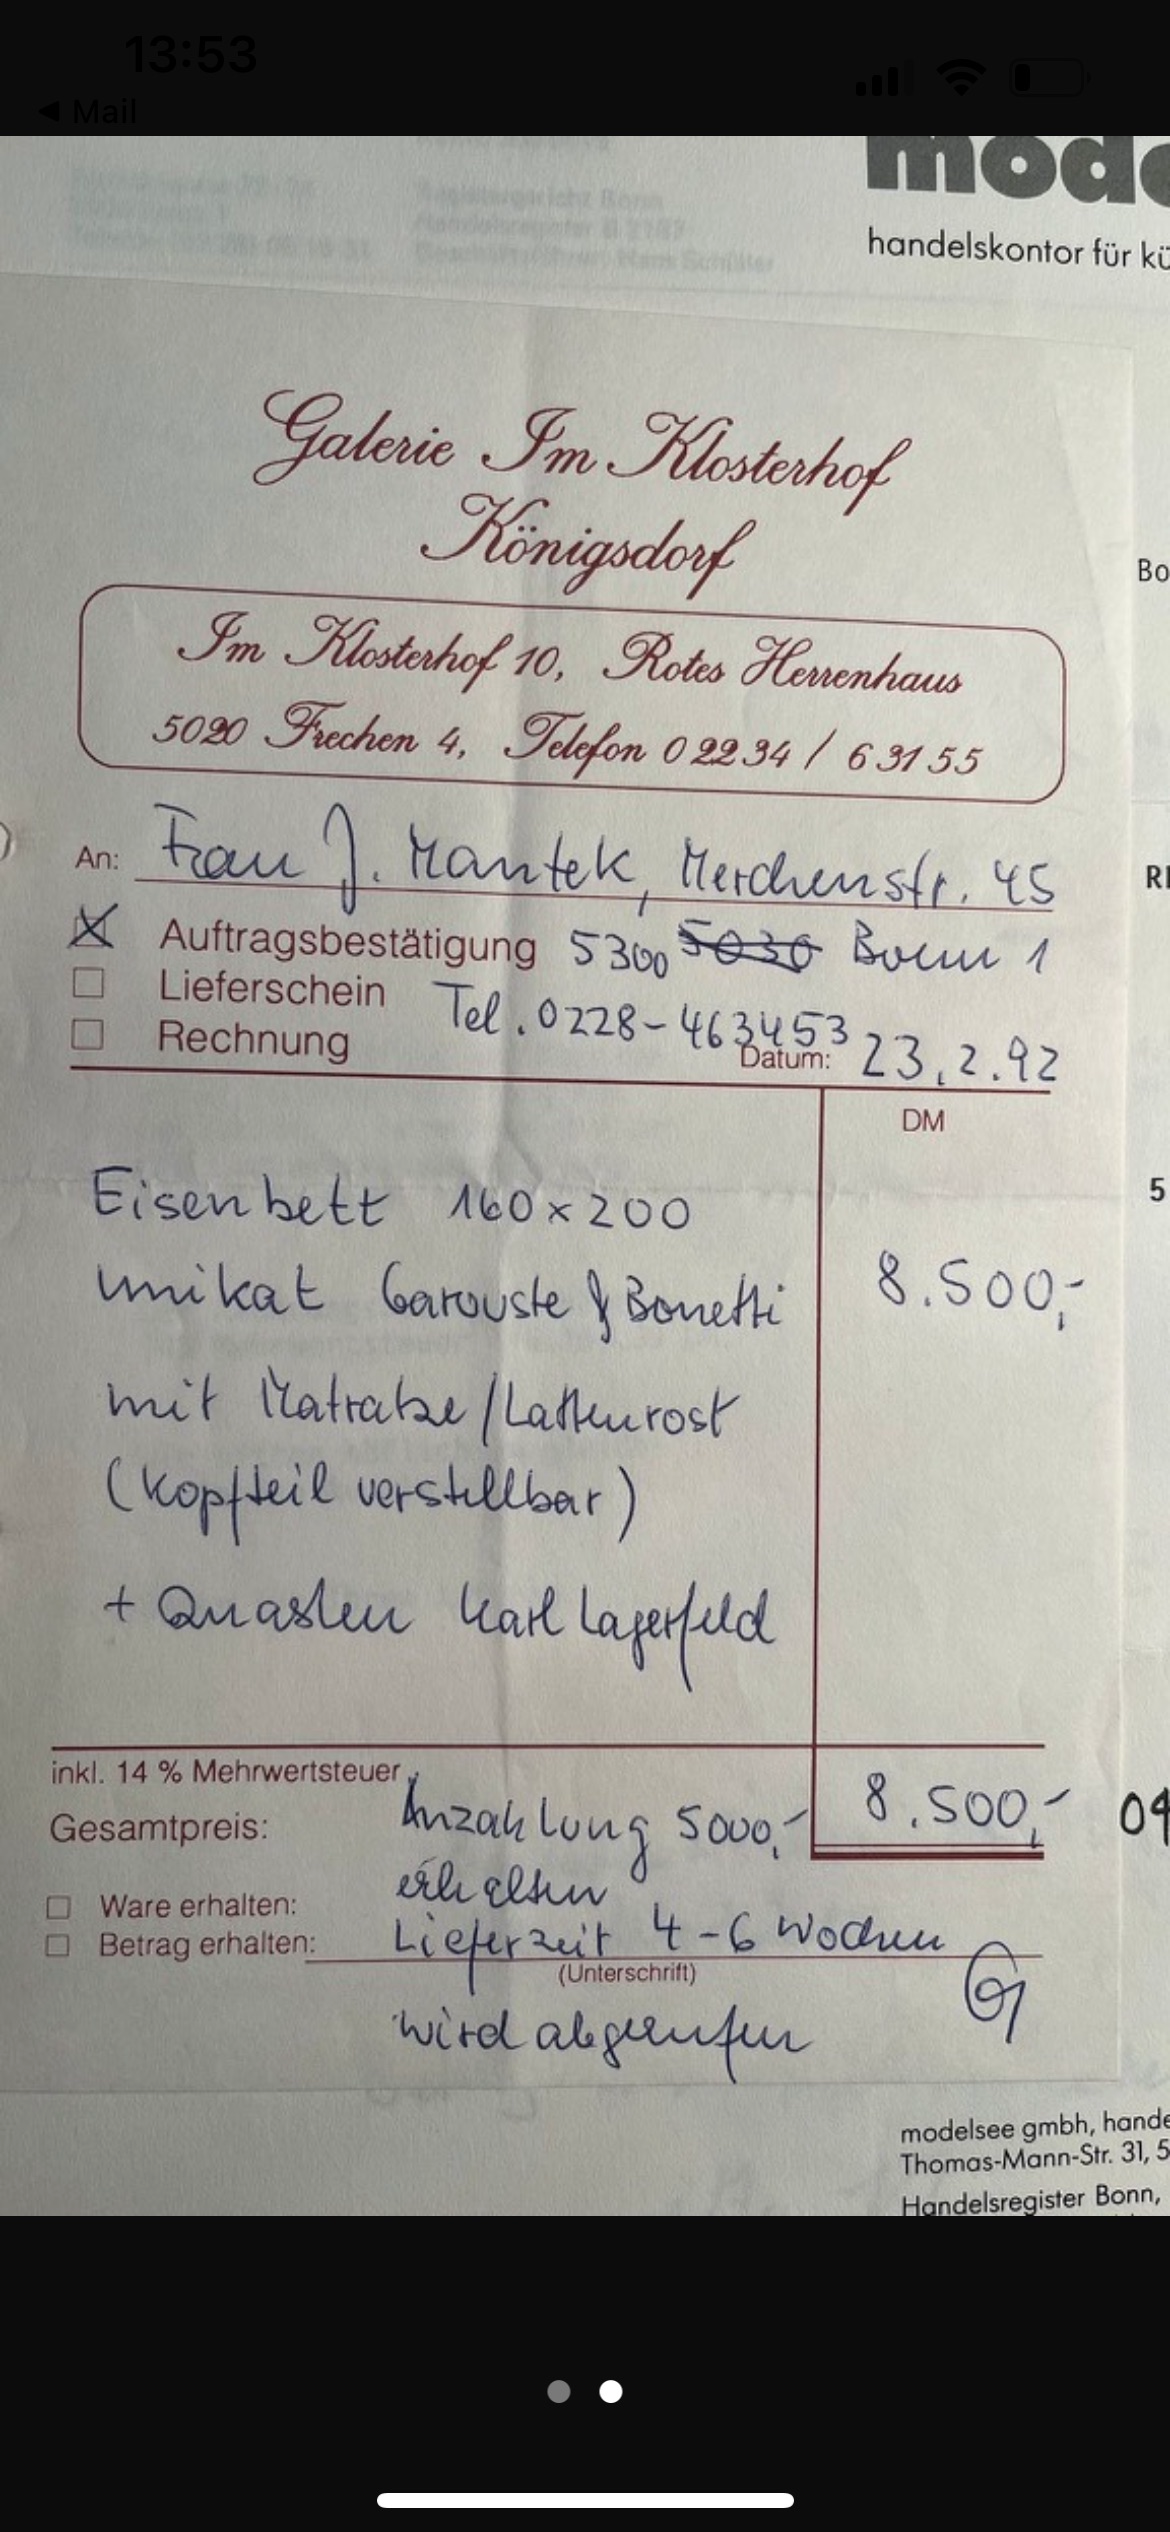 13:53
Mail
mode
handelskontor für kü
Registergericht Bonn
Handelsregister B 2187
Geschäftsführer: Hans Schüller
Galerie Im Klosterhof
Königsdorf
Im Klosterhof 10, Rotes Herrenhaus
5020 Frechen 4, Telefon 0 22 34 / 6 31 55
Bo
An: Frau J. Mantek, Merchenstr. 45
Auftragsbestätigung 5300 5030 Bonn 1
Lieferschein
Tel. 0228-463453
Rechnung
Datum: 23.2.92
DM
Eisenbett 160x200
5
unikat Garouste & Bonetti 8.500,-
mit Matratze/Lattenrost
(Kopfteil verstellbar)
+ Quasten Karl Lagerfeld
inkl. 14 % Mehrwertsteuer
Gesamtpreis: Anzahlung 5000,- 8.500,-
04
erhalten
Ware erhalten:
Betrag erhalten: Lieferzeit 4-6 Wochen
(Unterschrift)
wird abgerufen
modelsee gmbh, hande
Thomas-Mann-Str. 31, 5
Handelsregister Bonn,